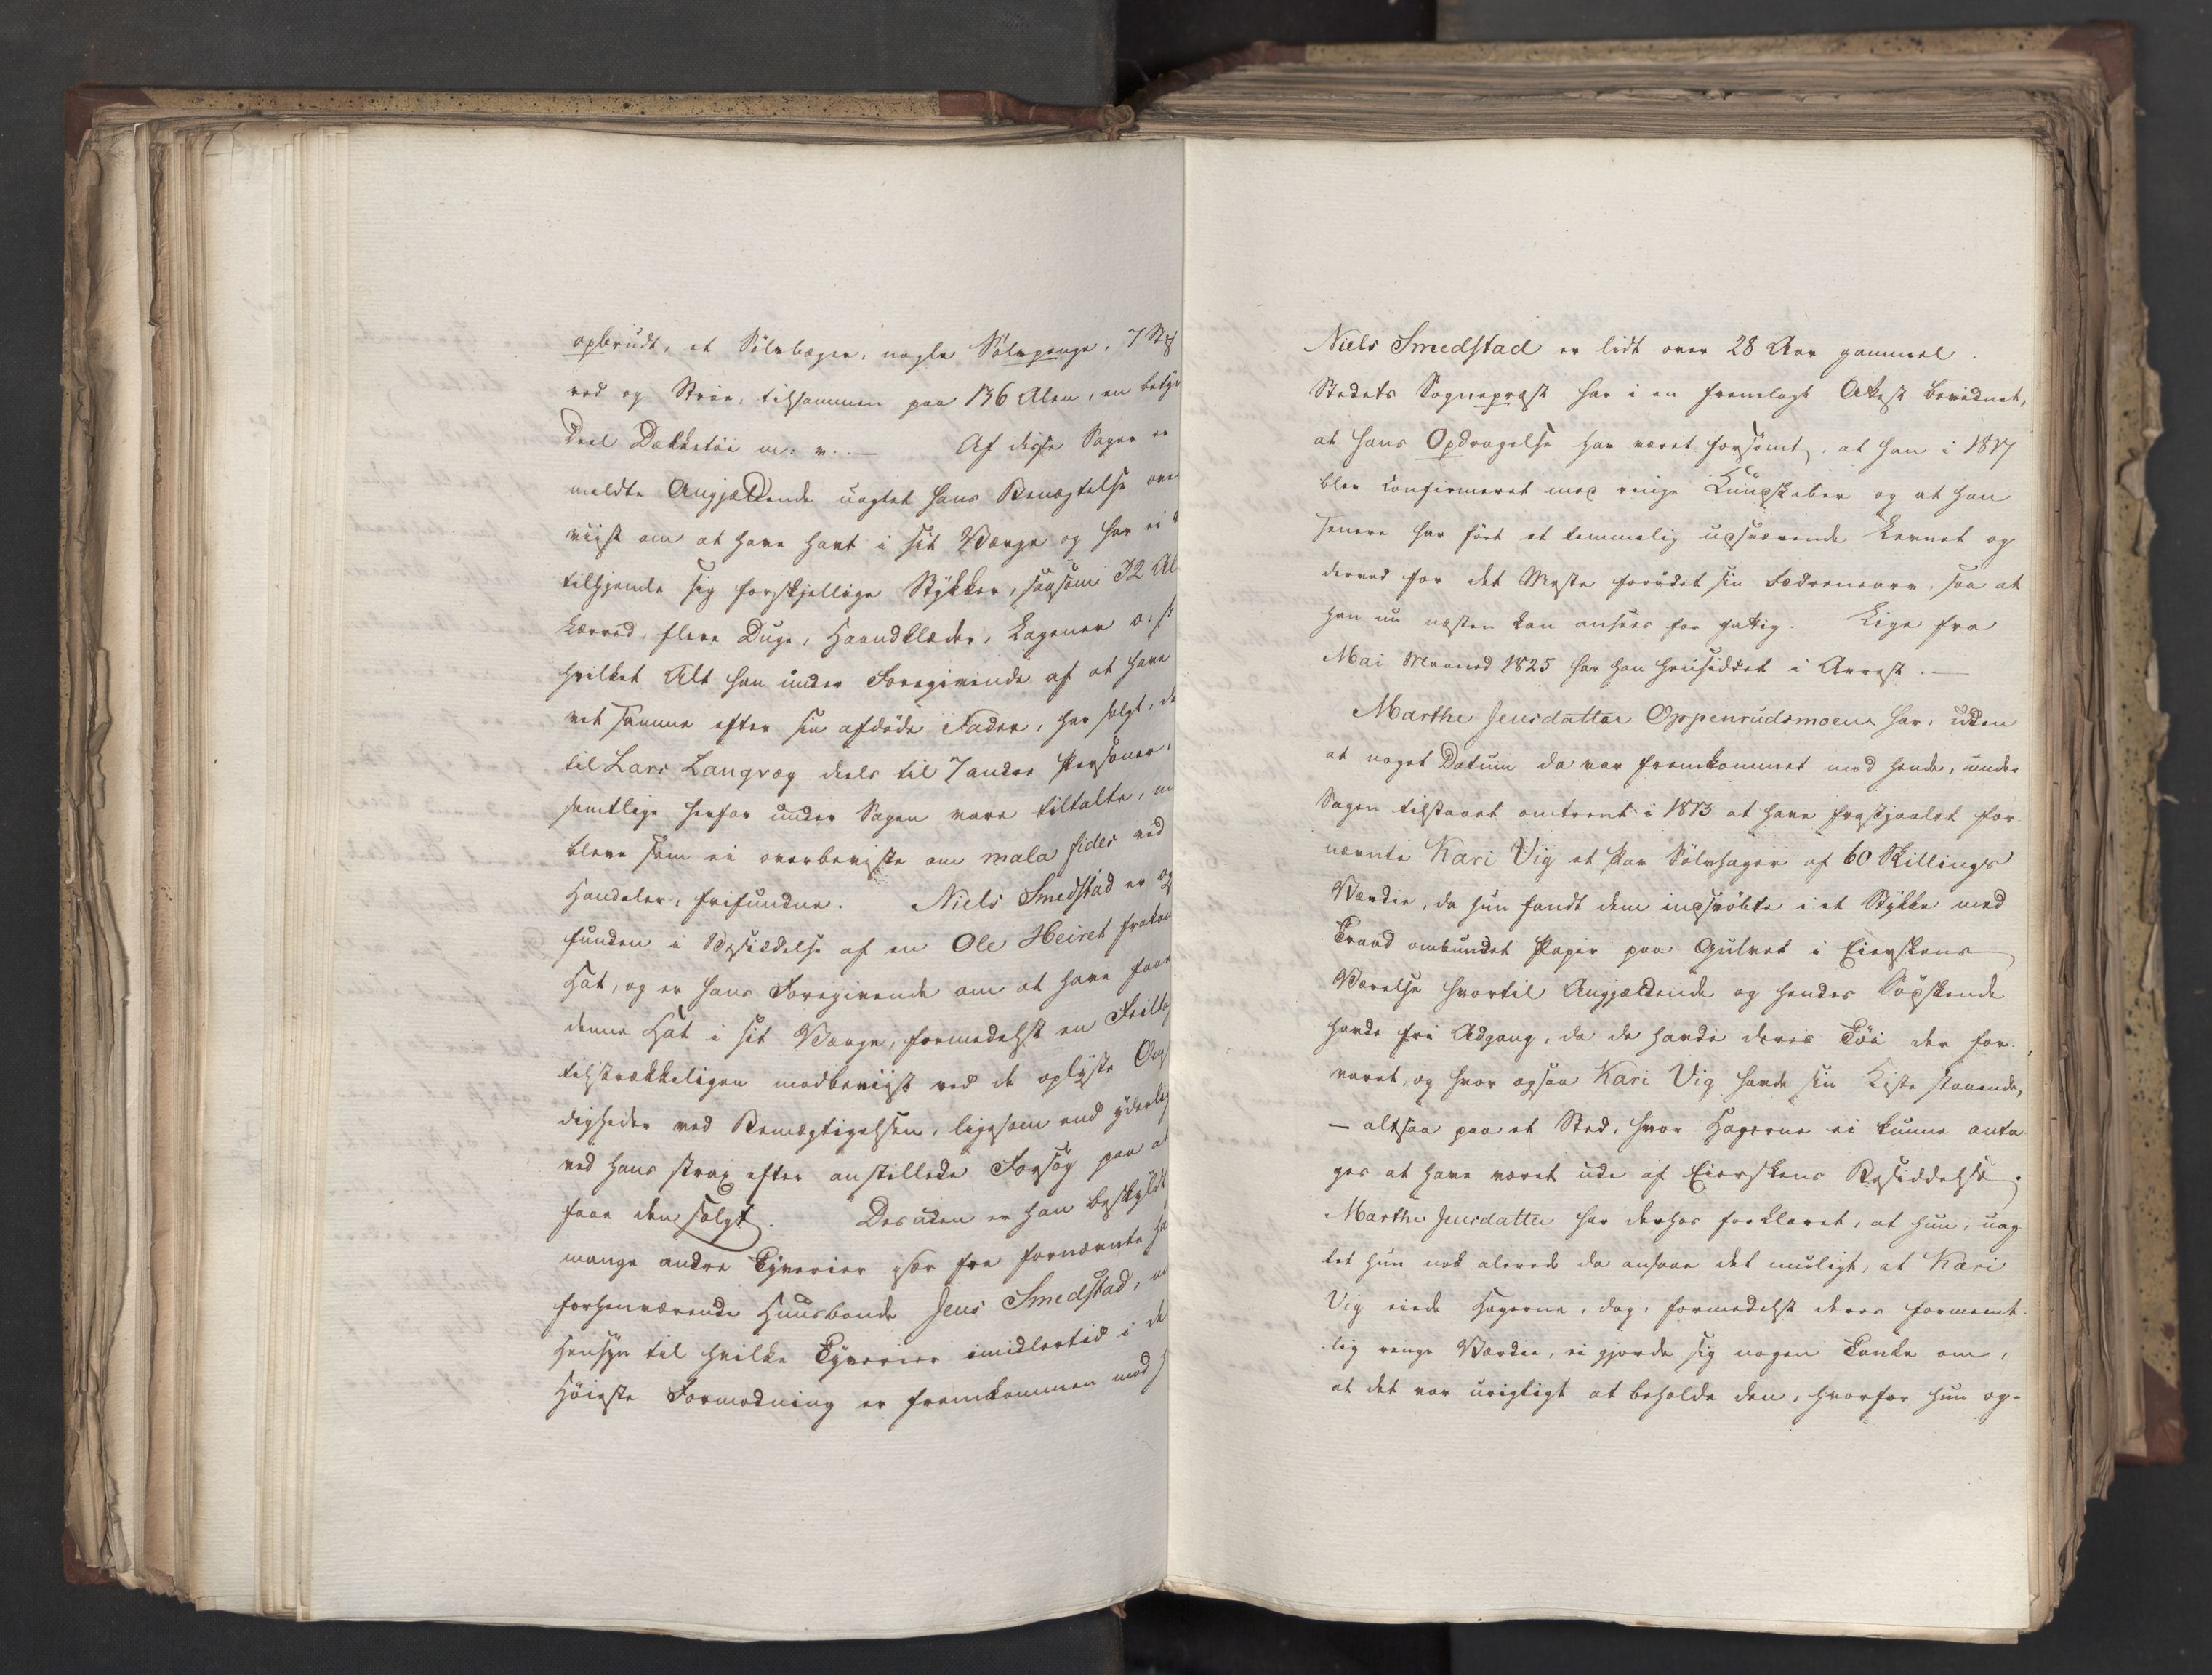 opbrudt, et Sölvbæger, nogle Sölvpenge, 7 Sty
ved og Strie, tilsammen paa 136 Alen, en betyd
deel Dækketöi m: v. — Af disse Sager er
meldte Angjældende uagtet hans Benægtelse over
viist om at have havt i sit Værge og har ei
tilhjemle sig forskjellige Stykker, saasom 32 Al
Lærred, flere Duge, Haandklæder, Lagener o: s:
hvilket Alt han under Foregivende af at have
vet samme efter sin afdöde Fader, har solgt, de
til Lars Langvæg deels til 7 andre Personer,
samtlige herfor under Sagen vare tiltalte, m
bleve som ei overbeviste om mala fides ved
Handelen, frifundne. Niels Smedstad er og
funden i Besiddelse af en Ole Heiret frakom
Hat, og er hans Foregivende om at have faae
denne Hat i sit Værge, formedelst en Feilta
tilstrækkeligen modbeviist ved de oplyste Om
digheder ved Bemægtigelsen, ligesom end yderlig
ved hans strax efter anstillede Forsög paa at
faae den solgt. Desuden er han beskyldt
mange andre Tyverier især fra fornævnte ha
forhenværende Huusbonde Jens Smedstad, m
Hensyn til hvilke Tyverier imidlertid i de
Höieste Formodning er fremkommen mod h
Niels Smedstad er lidt over 28 Aar gammel.
Stedets Sognepræst har i en fremlagt Attest bevidnet,
at hans Opdragelse har været forsömt, at han i 1817
blev confirmeret med ringe Kundskaber og at han
senere har fört et temmelig udsvævende Levnet og
derved for det Meste forödet sin Fædrenearv, saa at
han nu næsten kan ansees for fattig. Lige fra
Mai Maaned 1825 har han hensiddet i Arrest. —
Marthe Jensdatter Oppenrudsmoen har, uden
at noget Datum da var fremkommet mod hende, under
Sagen tilstaaet omtrent i 1813 at have frastjaalet for-
nævnte Kari Vig et Par Sölvhager af 60 Skillings
Værdie, da hun fandt dem indsvöbte i et Stykke med
Traad ombundet Papir paa Gulvet i Eierskens
Værelse hvortil Angjældende og hendes Södskende
havde fri Adgang, da de havde deres Töi der for-
varet, og hvor ogsaa Kari Vig havde sin Kiste staaende,
— altsaa paa et Sted, hvor Hagerne ei kunne anta-
ges at have været ude af Eierskens Besiddelse.
Marthe Jensdatter har derhos forklaret, at hun, uag-
tet hun nok alerede da ansaae det muligt, at Kari
Vig eiede Hagerne, dog, formedelst deres formeent-
lig ringe Værdie, ei gjorde sig nogen Tanke om,
at det var urigtigt at beholde dem, hvorfor hun og-